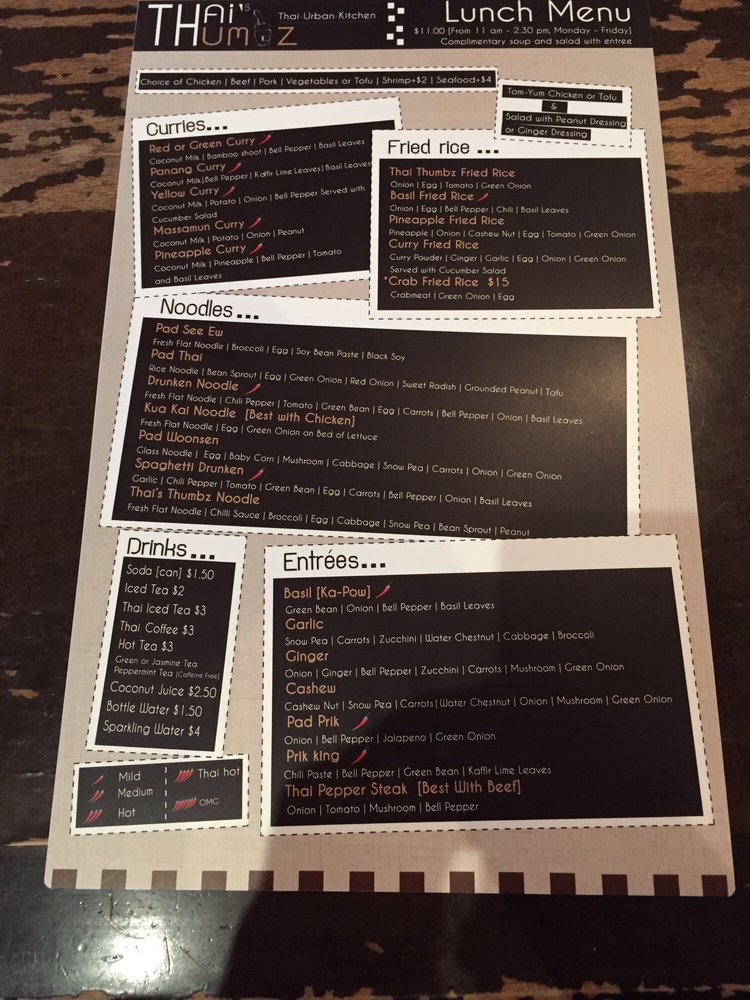 THai's Thai·Urban·Kitchen Lunch Menu
THumbz $11.00 [From 11 am - 2.30 pm, Monday - Friday]
Complimentary soup and salad with entree
Choice of Chicken | Beef | Pork | Vegetables or Tofu | Shrimp+$2 | Seafood+$4
Tom-Yum Chicken or Tofu
&
Salad with Peanut Dressing
or Ginger Dressing
Curries...
Red or Green Curry
Coconut Milk | Bamboo shoot | Bell Pepper | Basil Leaves
Panang Curry
Coconut Milk|Bell Pepper | Kaffir Lime Leaves| Basil Leaves
Yellow Curry
Coconut Milk | Potato | Onion | Bell Pepper Served with
Cucumber Salad
Massamun Curry
Coconut Milk | Potato | Onion | Peanut
Pineapple Curry
Coconut Milk | Pineapple | Bell Pepper | Tomato
and Basil Leaves
Fried rice ...
Thai Thumbz Fried Rice
Onion | Egg | Tomato | Green Onion
Basil Fried Rice
Onion | Egg | Bell Pepper | Chili | Basil Leaves
Pineapple Fried Rice
Pineapple | Onion | Cashew Nut | Egg | Tomato | Green Onion
Curry Fried Rice
Curry Powder | Ginger | Garlic | Egg | Onion | Green Onion
Served with Cucumber Salad
*Crab Fried Rice $15
Crabmeat | Green Onion | Egg
Noodles...
Pad See Ew
Fresh Flat Noodle | Broccoli | Egg | Soy Bean Paste | Black Soy
Pad Thai
Rice Noodle | Bean Sprout | Egg | Green Onion | Red Onion | Sweet Radish | Grounded Peanut | Tofu
Drunken Noodle
Fresh Flat Noodle | Chili Pepper | Tomato | Green Bean | Egg | Carrots | Bell Pepper | Onion | Basil Leaves
Kua Kai Noodle [Best with Chicken]
Fresh Flat Noodle | Egg | Green Onion on Bed of Lettuce
Pad Woonsen
Glass Noodle | Egg | Baby Corn | Mushroom | Cabbage | Snow Pea | Carrots | Onion | Green Onion
Spaghetti Drunken
Garlic | Chili Pepper | Tomato | Green Bean | Egg | Carrots | Bell Pepper | Onion | Basil Leaves
Thai's Thumbz Noodle
Fresh Flat Noodle | Chilli Sauce | Broccoli | Egg | Cabbage | Snow Pea | Bean Sprout | Peanut
Drinks...
Soda [can] $1.50
Iced Tea $2
Thai Iced Tea $3
Thai Coffee $3
Hot Tea $3
Green or Jasmine Tea
Peppermint Tea [Caffeine Free]
Coconut Juice $2.50
Bottle Water $1.50
Sparkling Water $4
Mild
Medium
Hot
Thai hot
OMG
Entrées...
Basil [Ka-Pow]
Green Bean | Onion | Bell Pepper | Basil Leaves
Garlic
Snow Pea | Carrots | Zucchini | Water Chestnut | Cabbage | Broccoli
Ginger
Onion | Ginger | Bell Pepper | Zucchini | Carrots | Mushroom | Green Onion
Cashew
Cashew Nut | Snow Pea | Carrots| Water Chestnut | Onion | Mushroom | Green Onion
Pad Prik
Onion | Bell Pepper | Jalapeno | Green Onion
Prik king
Chili Paste | Bell Pepper | Green Bean | Kaffir Lime Leaves
Thai Pepper Steak [Best With Beef]
Onion | Tomato | Mushroom | Bell Pepper